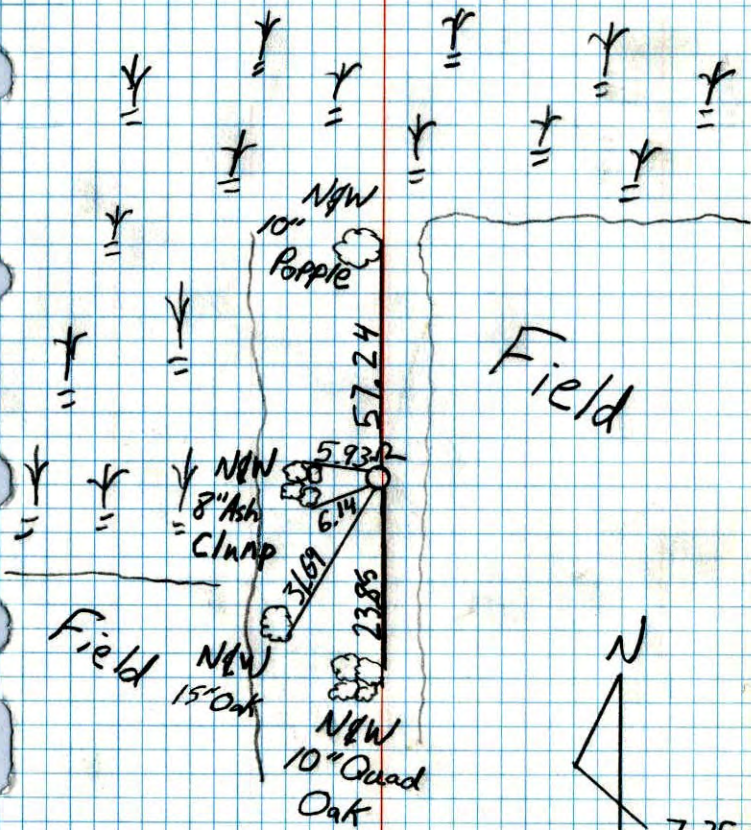 N&W
10"
Popple
57.24
Field
5.93
N&W
8" Ash
Clump
6.14
31.69
23.85
Field
N&W
15" Oak
N&W
10" Quad
Oak
N